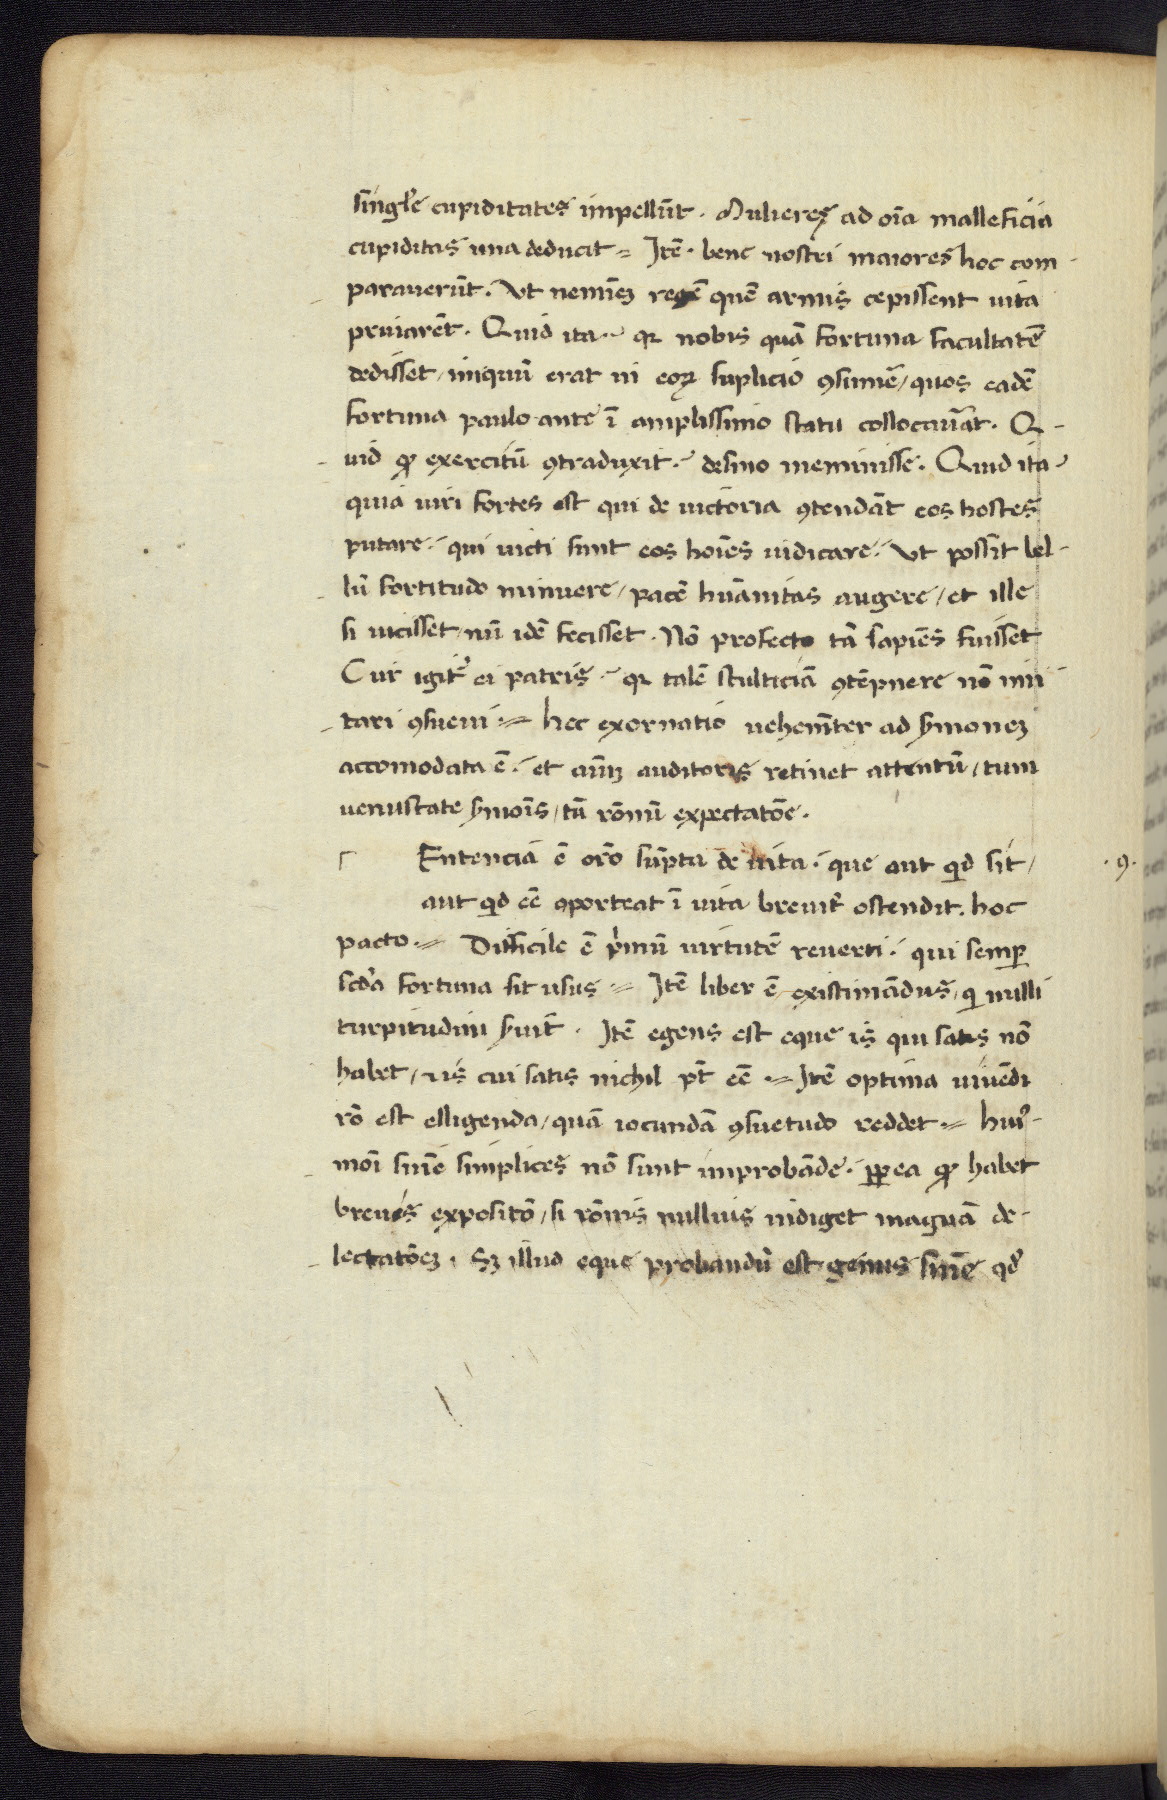 singl'e cupiditates impellūt. Mulieres ad oīa malleficia
cupiditas una deducit = Itē. bene nostri maiores hoc com
parauerūt. Vt neminē regē quē armis cepissent uita
priuarēt. Quid ita qꝛ nobis quā fortuna facultatē
dedisset, iniquū erat in eoꝝ suplicio ꝯsumē, quos eadē
fortuna paulo ante ī amplissimo statu collocauāt. Q-
uid ꝙ exercitū ꝯtraduxit. desino meminisse. Quid ita
quia uiri fortes est qui de uictoria ꝯtendāt eos hostes
putare. qui uicti sunt eos hoīes iudicare. Vt possit bel-
lū fortitudo minuere, pacē humānitas augere, et ille
si uicisset, nū idē fecisset. Nō profecto tā sapiēs fuisset
Cur igit' ei patris. qꝛ talē stulticiā ꝯtēpnere nō imi
tari ꝯsueui = hec exornatio uehemēter ad s̄monē
accomodata ē. et aīuꝫ auditoris retinet attentū, tum
uenustate s̄mois, tū rōnū expectatōe.
Entencia ē orō sūpta de uita. que aut qͥd sit,
.9.
aut qͥd eē oporteat ī uita breuit' ostendit. hoc
pacto = Difficile ē p'mū uirtutē reuerti. qui semꝑ
scd'a fortuna sit usus = Itē liber ē existimādus, qͥ nulli
turpitudini s̄uit. Itē egens est eque is qui satis nō
habet, ⁊ is cui satis nichil pt̄ eē = Itē optima uiuēdi
rō est elligenda, quā iocundā ꝯsuetudo reddet = hui'-
moī sn̄ie simplices nō sunt improbāde. ꝓpea ꝙ habet
breuis expositō, si rōnis nullius indiget magnā de-
lectatōeꝫ. Sꝫ illud eque probandū est genus sn̄ie qd'